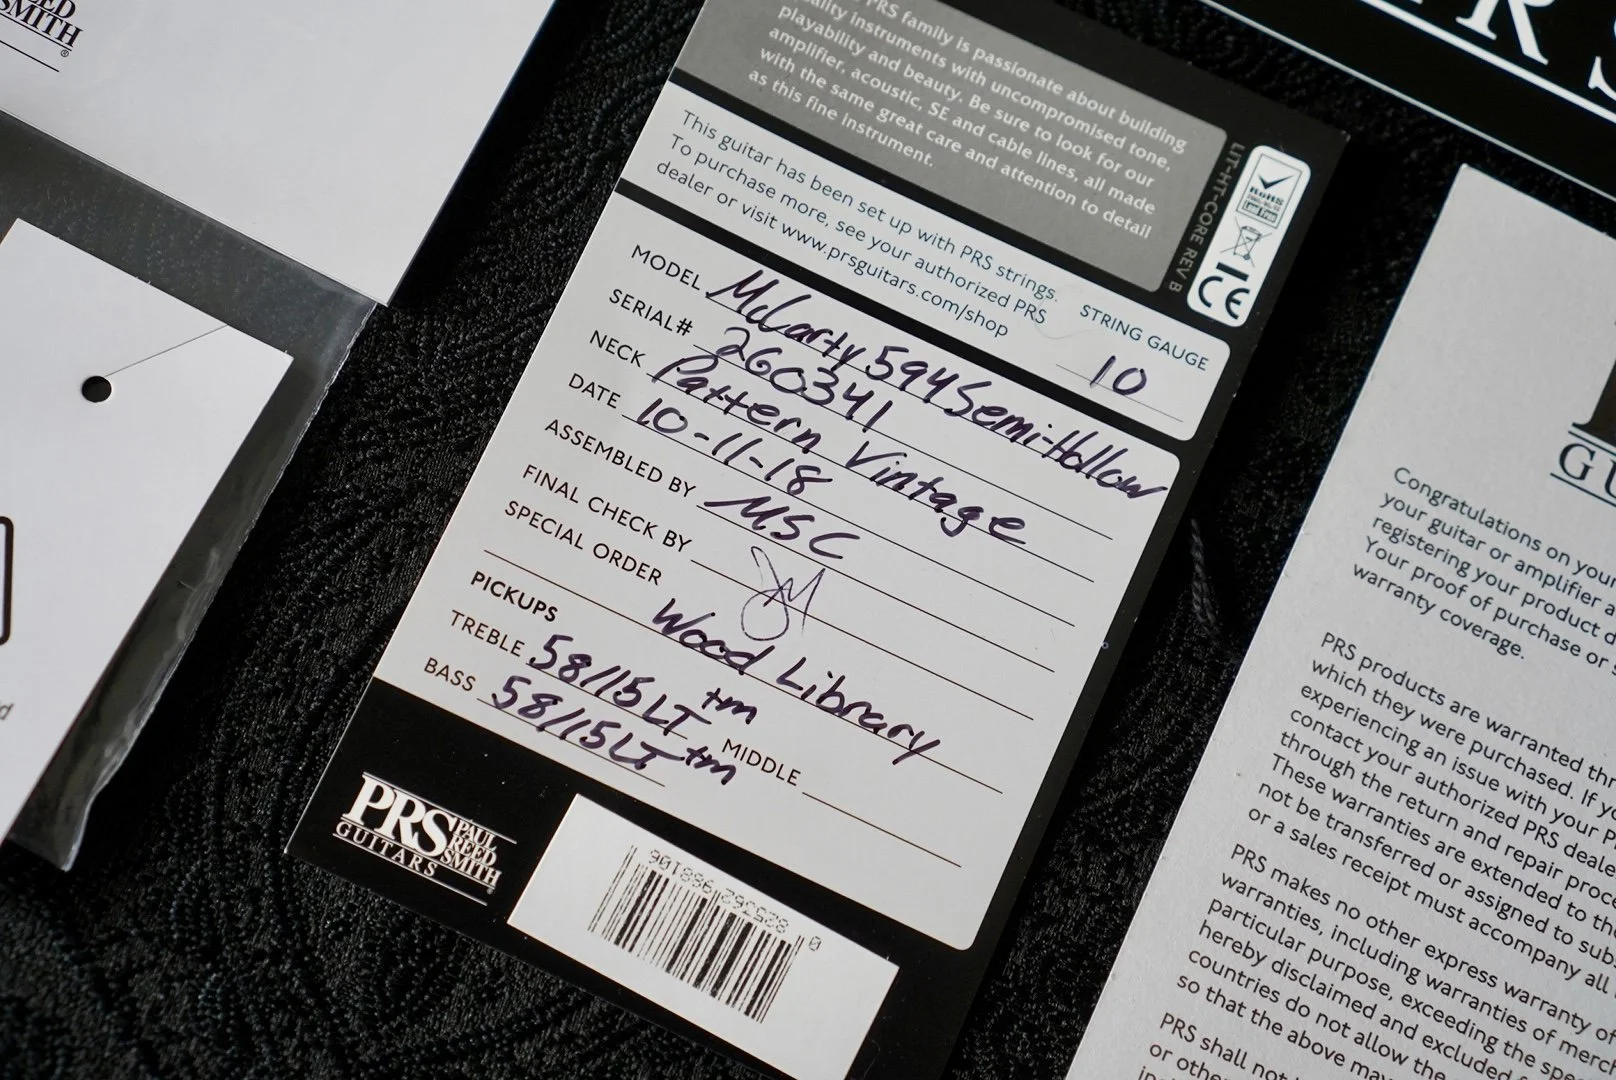 REED
SMITH
®
RS
PRS family is passionate about building
instruments with uncompromised tone,
playability and beauty. Be sure to look for our
amplifier, acoustic, SE and cable lines, all made
with the same great care and attention to detail
as this fine instrument.
LIT-HT-CORE REV B
RoHS
Lead Free
CE
This guitar has been set up with PRS strings.
To purchase more, see your authorized PRS
dealer or visit www.prsguitars.com/shop
STRING GAUGE
10
MODEL McCarty 594 Semi-Hollow
SERIAL# 260341
NECK Pattern Vintage
DATE 10-11-18
ASSEMBLED BY MSC
FINAL CHECK BY
SPECIAL ORDER
Wood Library
PICKUPS
TREBLE 58/15 LT tm
BASS 58/15 LT tm MIDDLE
PRS PAUL REED SMITH
GUITARS
GU
Congratulations on your
your guitar or amplifier
registering your product
Your proof of purchase or
warranty coverage.
PRS products are warranted
which they were purchased. If
experiencing an issue with your
contact your authorized PRS
through the return and repair
These warranties are extended to
not be transferred or assigned to
or a sales receipt must accompany all
PRS makes no other express warranty
warranties, including warranties of
particular purpose, exceeding the
hereby disclaimed and excluded
countries do not allow the
so that the above may
PRS shall not
or other